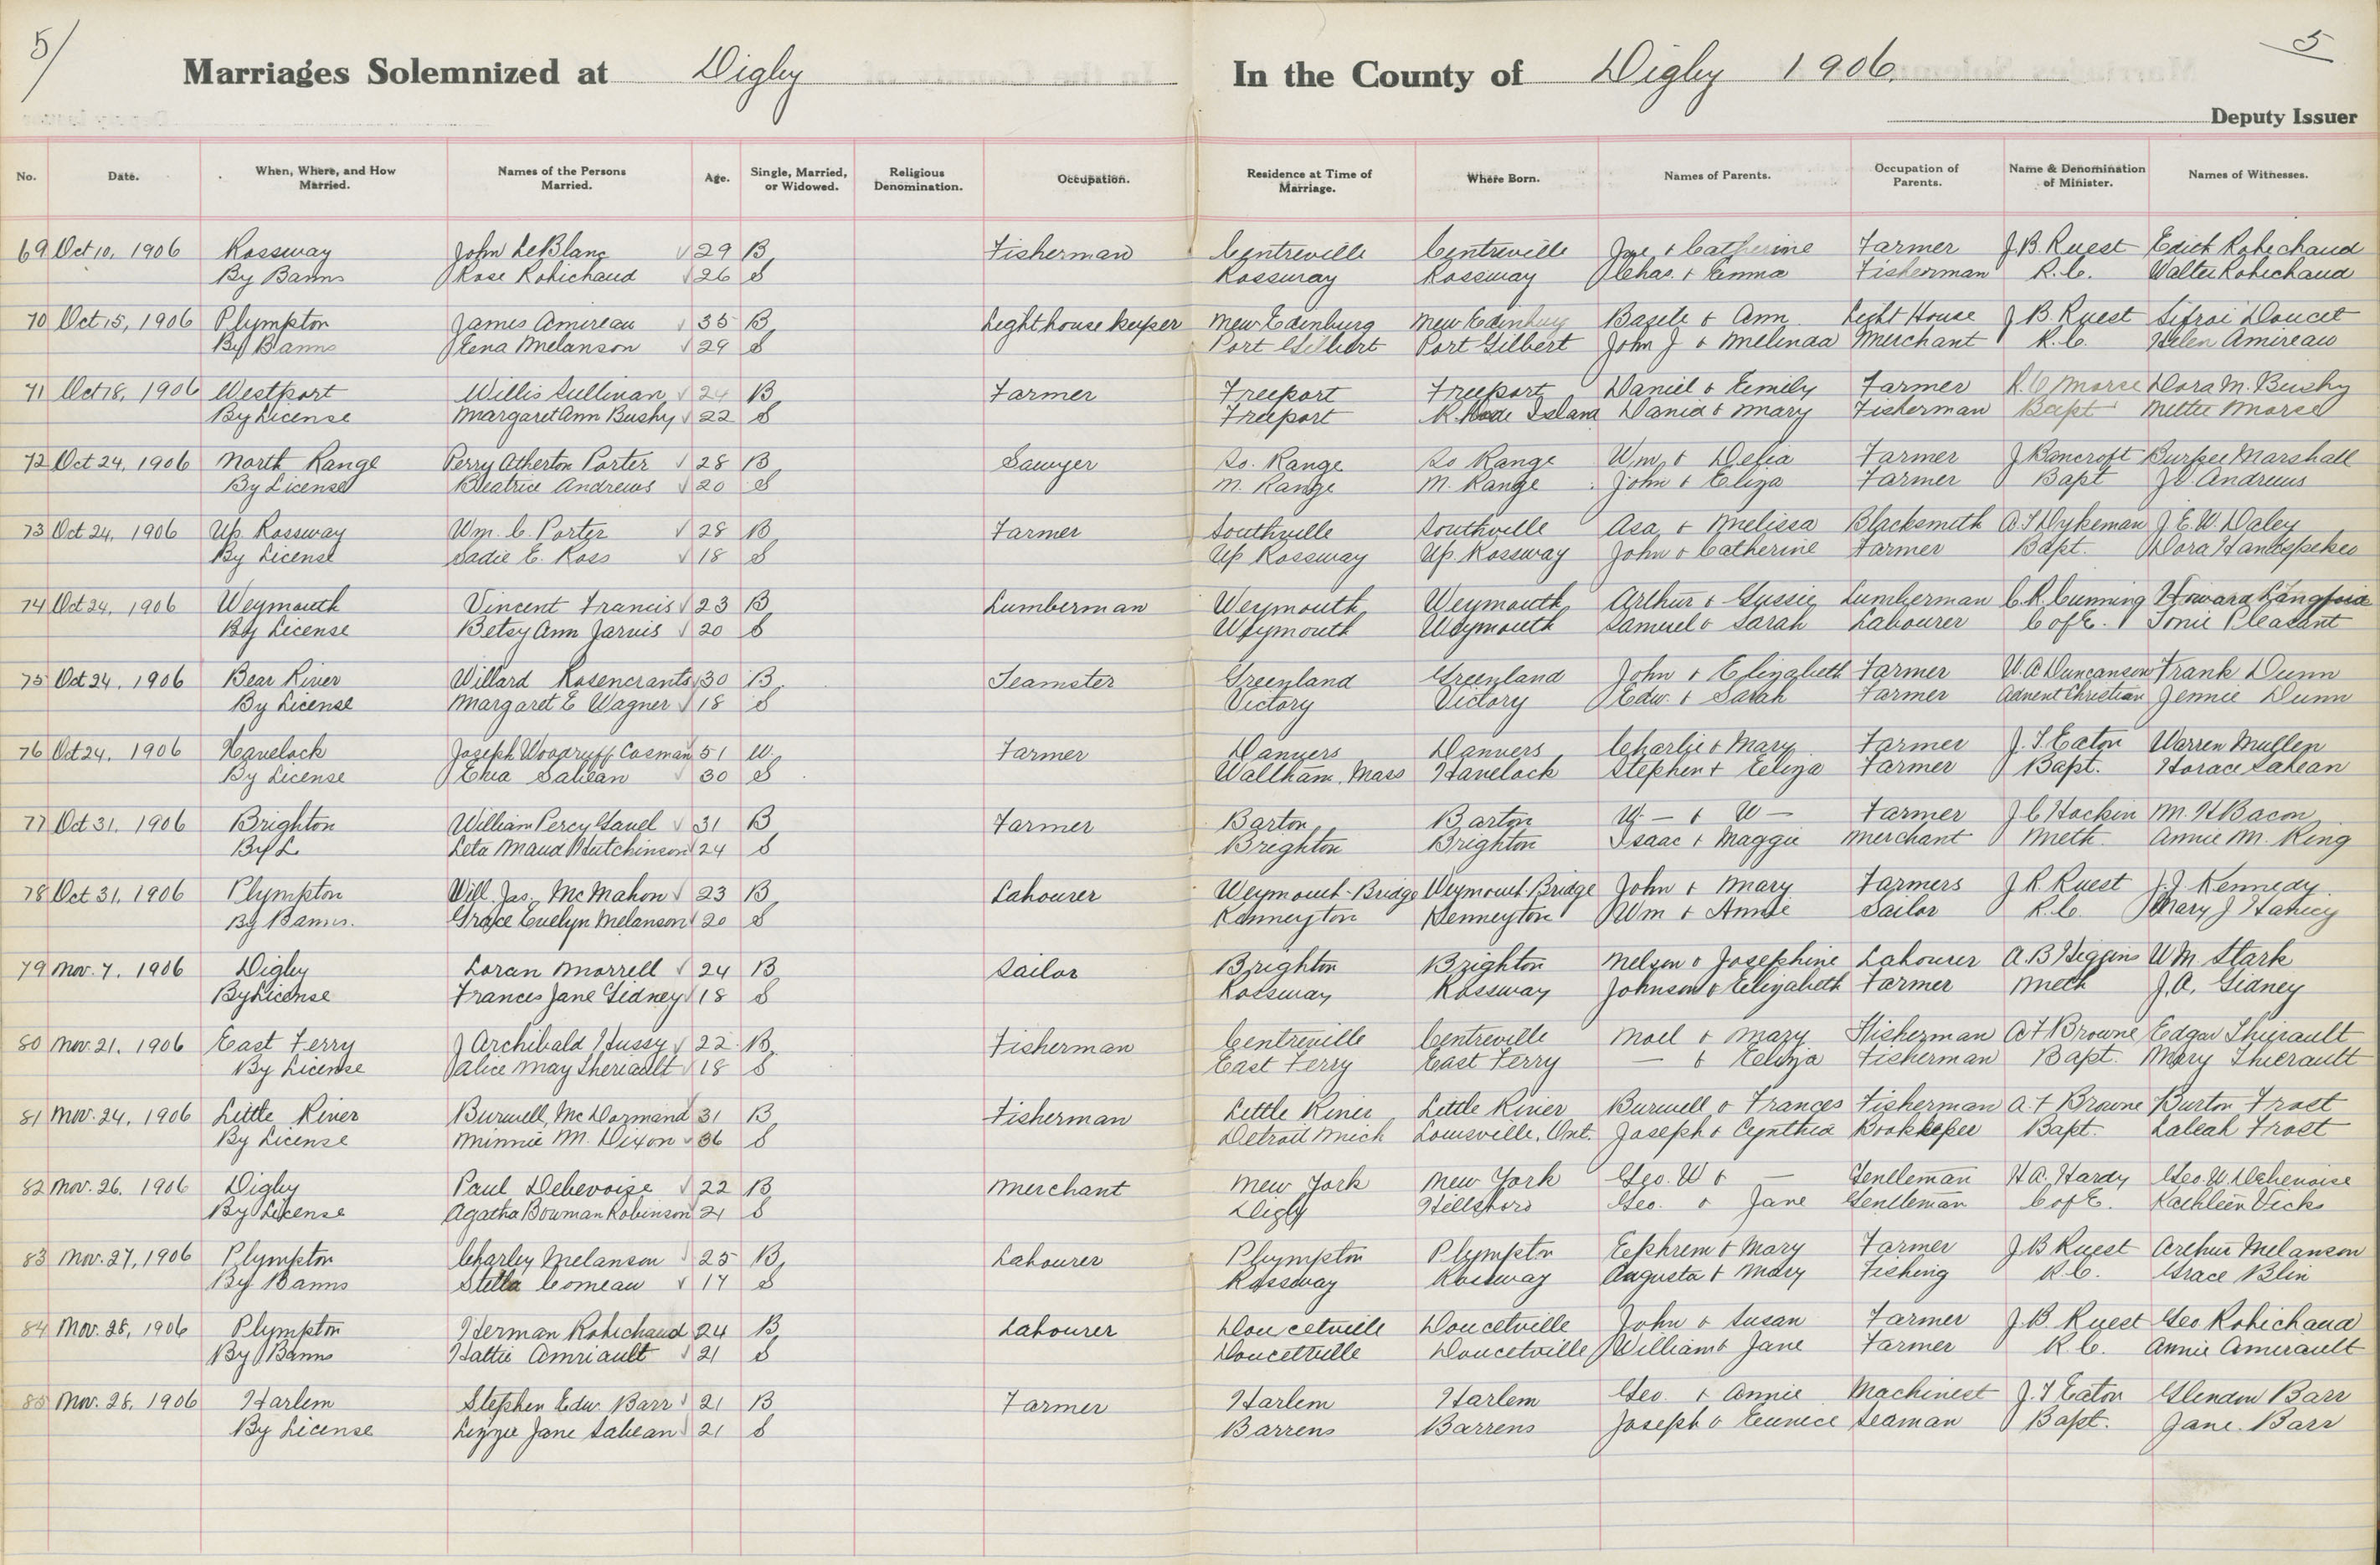 5/
5
Marriages Solemnized at Digby In the County of Digby 1906.
Deputy Issuer
No. Date. When, Where, and How Married. Names of the Persons Married. Age. Single, Married, or Widowed. Religious Denomination. Occupation. Residence at Time of Marriage. Where Born. Names of Parents. Occupation of Parents. Name & Denomination of Minister. Names of Witnesses.
69 Oct 10, 1906 Rossway John LeBlanc 29 B Fisherman Centreville Centreville Joe & Catherine Farmer J.B. Ruest Edith Robichaud
By Banns Rose Robichaud 26 S Rossway Rossway Chas. & Emma Fisherman R.C. Walter Robichaud
70 Oct 15, 1906 Plympton James Amireau 35 B Lighthouse keeper New Edinburg New Edinburg Basele & Ann Light House J B. Ruest Sifroi Doucet
By Banns Lena Melanson 29 S Port Gilbert Port Gilbert John J & Melinda Merchant R.C. Helen Amireau
71 Oct 18, 1906 Westport Willis Sullivan 24 B Farmer Freeport Freeport Daniel & Emily Farmer R.O Morse Dora M. Bushy
By License Margaret Ann Bushy 22 S Freeport R. Hode Island David & Mary Fisherman Bapt Mettie Morse
72 Oct 24, 1906 North Range Perry Atherton Porter 28 B Sawyer So. Range So Range Wm. & Delia Farmer J Bancroft Burpee Marshall
By License Beatrice Andrews 20 S N. Range N. Range John & Eliza Farmer Bapt Andrews
73 Oct 24, 1906 Up. Rossway Wm. C. Porter 28 B Farmer Southville Southville Asa & Melissa Blacksmith A.J Dykeman J.E.W. Daley
By License Sadie E. Ross 18 S Up Rossway Up. Rossway John & Catherine Farmer Bapt. Dora Handspeker
74 Oct 24, 1906 Weymouth Vincent Francis 23 B Lumberman Weymouth Weymouth Arthur & Gussie Lumberman C.R. Cumming Howard Langford
By License Betsy Ann Jarvis 20 S Weymouth Weymouth Samuel & Sarah Labourer C of E. Tonie Pleasant
75 Oct 24, 1906 Bear River Willard Rosencrants 30 B Teamster Greenland Greenland John & Elizabeth Farmer W.A Duncanson Frank Dunn
By License Margaret E Wagner 18 S Victory Victory Edw. & Sarah Farmer Advent Christian Jennie Dunn
76 Oct 24, 1906 Havelock Joseph Woodruff Cosman 51 W. Farmer Danvers Danvers Charlie & Mary Farmer J.T. Eaton Warren Mullen
By License Sabean 30 S Waltham, Mass Havelock Stephen & Eliza Farmer Bapt. Horace Sabean
77 Oct 31, 1906 Brighton William Percy Gavel 31 B Farmer Barton Barton W— & W— Farmer J.C Hockin M.H Bacon
By L Leta Maud Hutchinson 24 S Brighton Brighton Isaac & Maggie Merchant Meth. Annie M. King
78 Oct 31, 1906 Plympton Will. Jas. McMahon 23 B Labourer Weymouth-Bridge Weymouth-Bridge John & Mary Farmers J.R. Ruest J.J. Kennedy.
By Banns. Grace Evelyn Melanson 20 S Kenneyton Kenneyton Wm & Annie Sailor R.C. Mary J Haney
79 Nov. 7, 1906 Digby Loran Morrell 24 B Sailor Brighton Brighton Nelson & Josephine Labourer A.B Higgins W.M. Stark
By License Frances Jane Gidney 18 S Rossway Rossway Johnson & Elizabeth Farmer Meth J.A. Gidney
80 Nov. 21, 1906 East Ferry J Archibald Hussy 22 B Fisherman Centreville Centreville Noel & Mary Fisherman A F Browne Edgar Thirault
By License Alice May Theriault 18 S East Ferry East Ferry — & Eliza Fisherman Bapt. Mary Thierault
81 Nov. 24, 1906 Little River Burwell McDormand 31 B Fisherman Little River Little River Burwell & Frances Fisherman A.F Browne Burton Frost
By License Minnie M. Dixon 36 S Detroit Mich Louisville, Ont. Joseph & Cynthia Bookkeeper Bapt. Laleah Frost
82 Nov. 26, 1906 Digby Paul Debevoise 22 B Merchant New York New York Geo. W & — Gentleman H.A. Hardy Geo. W. Debevoise
By License Agatha Bowman Robinson 21 S Digby Hillsboro Geo. & Jane Gentleman C of E. Kathleen Vicks
83 Nov. 27, 1906 Plympton Charley Melanson 25 B Labourer Plympton Plympton Ephrem & Mary Farmer J.B Ruest Arthur Melanson
By Banns Stella Comeau 17 S Rossway Rossway Augusta & Mary Fishing R.C. Grace Blin
84 Nov. 28, 1906 Plympton Herman Robichaud 24 B Labourer Doucetville Doucetville John & Susan Farmer J.B. Ruest Geo Robichaud
By Banns Hattie Amriault 21 S Doucetville Doucetville William & Jane Farmer R.C. Annie Amirault
85 Nov. 28, 1906 Harlem Stephen Edw. Barr 21 B Farmer Harlem Harlem Geo. & Annie Machinest J.T Eaton Glendon Barr
By License Lizzie Jane Sabean 21 S Barrens Barrens Joseph & Eunice Seaman Bapt. Jane. Barr